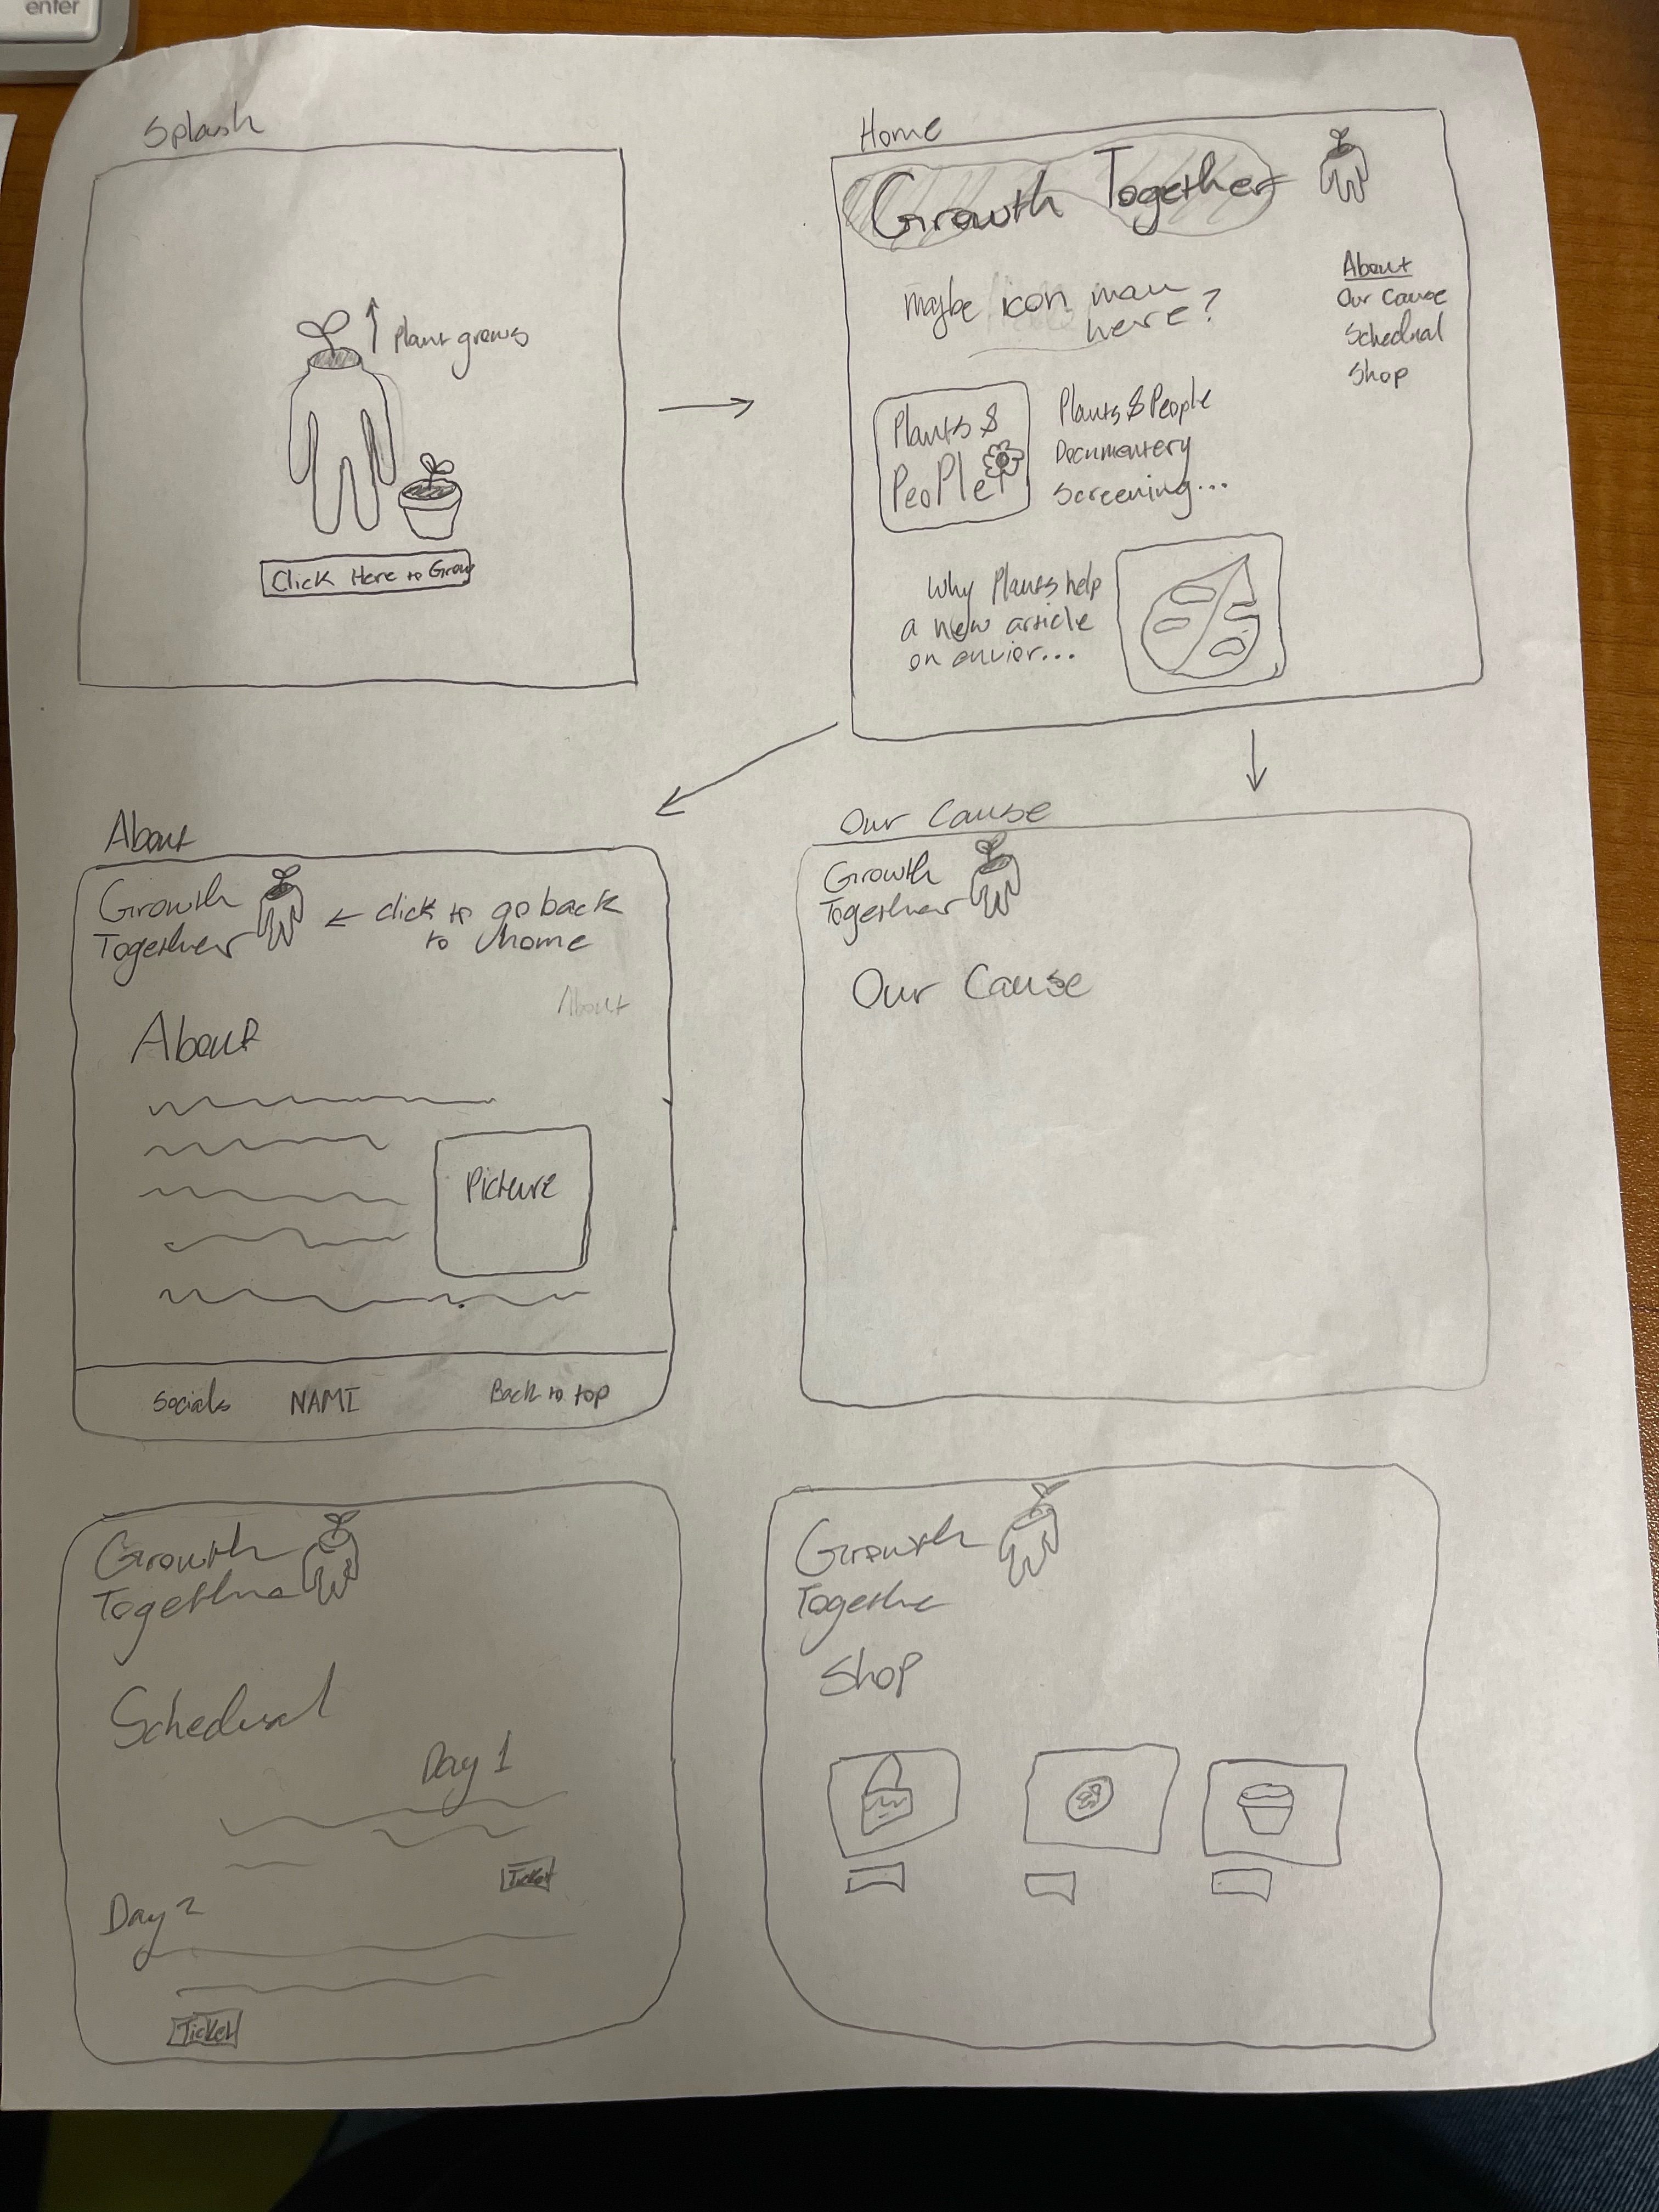 enter
Splash
Plant grows
Click Here to Grow
Home
Growth Together
maybe icon man
here?
About
Our Cause
Schedual
Shop
Plants &
PeoPle
Plants & People
Documentery
Screening...
Why Plants help
a new article
on envior...
About
Growth
Together
← click to go back
to home
About
About
Picture
Socials NAMI Back to top
Our Cause
Growth
Together
Our Cause
Growth
Together
Schedual
Day 1
Ticket
Day 2
Ticket
Growth
Together
Shop